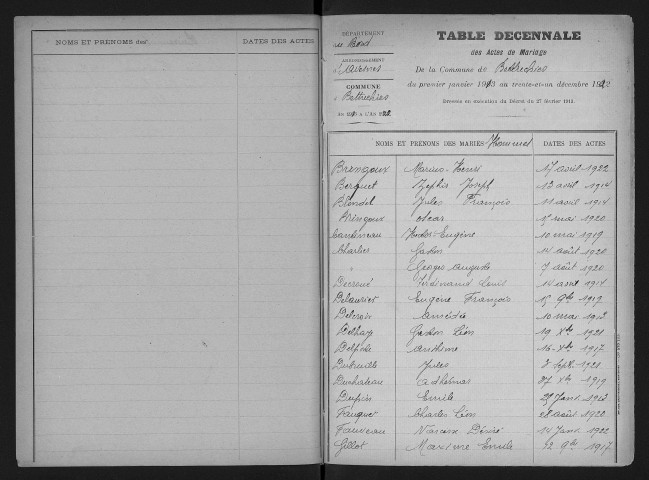 NOMS ET PRÉNOMS des
DATES DES ACTES
DÉPARTEMENT
du Nord
ARRONDISSEMENT
d'Avesnes
COMMUNE
de Bettrechies
TABLE DÉCENNALE
des Actes de Mariage
De la Commune de Bettrechies
du premier janvier 1913 au trente-et-un décembre 1922
Dressée en exécution du Décret du 27 février 1913.
NOMS ET PRÉNOMS DES MARIÉS Hommes
DATES DES ACTES
Brengoux Marius Henri 17 avril 1922
Berquet Zéphir Joseph 13 avril 1914
Blondel Jules François 11 avril 1914
Oscar 1er mai 1920
Eugène 10 mai 1919
Charlies Gaston 14 août 1920
" Georges Auguste 7 août 1920
Ferdinand Louis 14 avril 1914
Delaurier Eugène François 15 9bre 1919
Delcroix Amédée 10 mai 1913
Delhaye Gaston Léon 19 Xbre 1921
Anthime 16 Xbre 1917
Dutreuille Jules 3 Sept. 1921
Duchateau Adhémar 27 Xbre 1919
Dupire Emile 29 Janv. 1913
Fauquet Charles Léon 28 août 1920
Fauveau Narcisse Désiré 14 Janv. 1922
Gillot Maxime Emile 22 9bre 1917